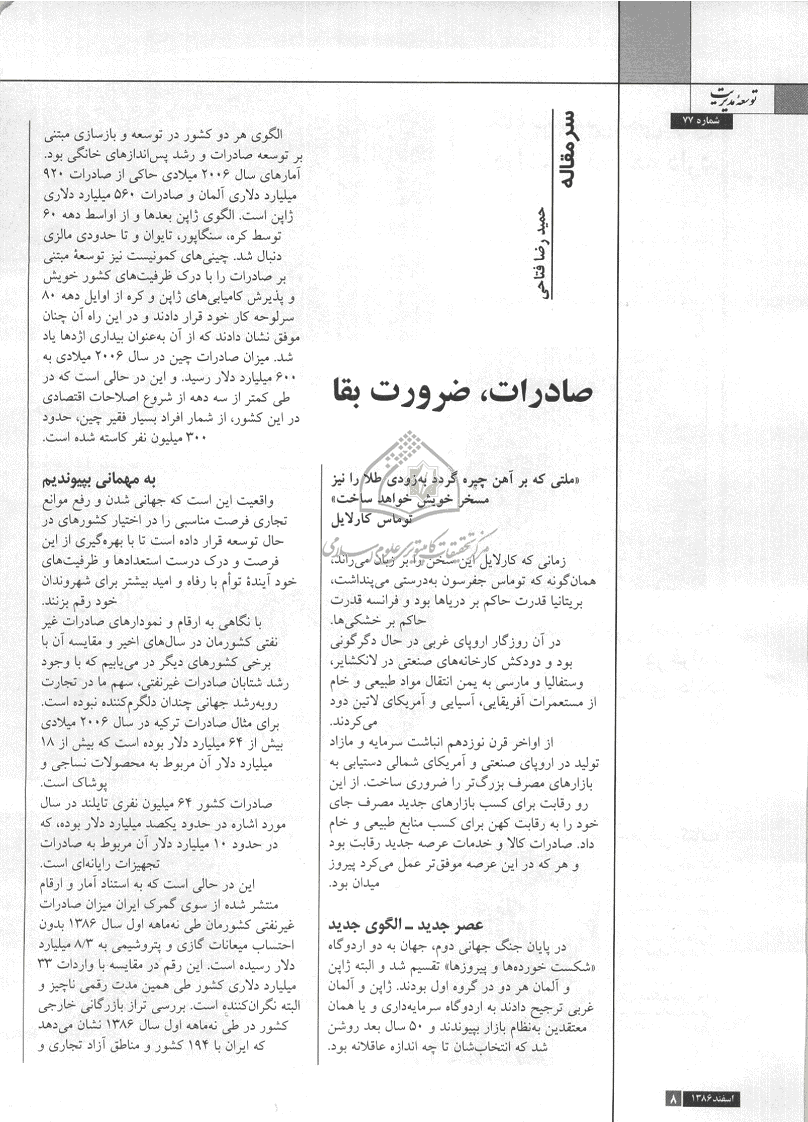 توسعهٔ مدیریت
شماره ۷۷
سرمقاله
حمید رضا فتاحی
صادرات، ضرورت بقا
«ملتی که بر آهن چیره گردد به‌زودی طلا را نیز
مسخر خویش خواهد ساخت»
توماس کارلایل
مرکز تحقیقات کامپیوتری علوم اسلامی
زمانی که کارلایل این سخن را بر زبان می‌راند،
همان‌گونه که توماس جفرسون به‌درستی می‌پنداشت،
بریتانیا قدرت حاکم بر دریاها بود و فرانسه قدرت
حاکم بر خشکی‌ها.
در آن روزگار اروپای غربی در حال دگرگونی
بود و دودکش کارخانه‌های صنعتی در لانکشایر،
وستفالیا و مارسی به یمن انتقال مواد طبیعی و خام
از مستعمرات آفریقایی، آسیایی و آمریکای لاتین دود
می‌کردند.
از اواخر قرن نوزدهم انباشت سرمایه و مازاد
تولید در اروپای صنعتی و آمریکای شمالی دستیابی به
بازارهای مصرف بزرگ‌تر را ضروری ساخت. از این
رو رقابت برای کسب بازارهای جدید مصرف جای
خود را به رقابت کهن برای کسب منابع طبیعی و خام
داد. صادرات کالا و خدمات عرصه جدید رقابت بود
و هر که در این عرصه موفق‌تر عمل می‌کرد پیروز
میدان بود.
عصر جدید ــ الگوی جدید
در پایان جنگ جهانی دوم، جهان به دو اردوگاه
«شکست خورده‌ها و پیروزها» تقسیم شد و البته ژاپن
و آلمان هر دو در گروه اول بودند. ژاپن و آلمان
غربی ترجیح دادند به اردوگاه سرمایه‌داری و یا همان
معتقدین به‌نظام بازار بپیوندند و ۵۰ سال بعد روشن
شد که انتخاب‌شان تا چه اندازه عاقلانه بود.
الگوی هر دو کشور در توسعه و بازسازی مبتنی
بر توسعه صادرات و رشد پس‌اندازهای خانگی بود.
آمارهای سال ۲۰۰۶ میلادی حاکی از صادرات ۹۲۰
میلیارد دلاری آلمان و صادرات ۵۶۰ میلیارد دلاری
ژاپن است. الگوی ژاپن بعدها و از اواسط دهه ۶۰
توسط کره، سنگاپور، تایوان و تا حدودی مالزی
دنبال شد. چینی‌های کمونیست نیز توسعهٔ مبتنی
بر صادرات را با درک ظرفیت‌های کشور خویش
و پذیرش کامیابی‌های ژاپن و کره از اوایل دهه ۸۰
سرلوحه کار خود قرار دادند و در این راه آن چنان
موفق نشان دادند که از آن به‌عنوان بیداری اژدها یاد
شد. میزان صادرات چین در سال ۲۰۰۶ میلادی به
۶۰۰ میلیارد دلار رسید. و این در حالی است که در
طی کمتر از سه دهه از شروع اصلاحات اقتصادی
در این کشور، از شمار افراد بسیار فقیر چین، حدود
۳۰۰ میلیون نفر کاسته شده است.
به مهمانی بپیوندیم
واقعیت این است که جهانی شدن و رفع موانع
تجاری فرصت مناسبی را در اختیار کشورهای در
حال توسعه قرار داده است تا با بهره‌گیری از این
فرصت و درک درست استعدادها و ظرفیت‌های
خود آیندهٔ توأم با رفاه و امید بیشتر برای شهروندان
خود رقم بزنند.
با نگاهی به ارقام و نمودارهای صادرات غیر
نفتی کشورمان در سال‌های اخیر و مقایسه آن با
برخی کشورهای دیگر در می‌یابیم که با وجود
رشد شتابان صادرات غیرنفتی، سهم ما در تجارت
روبه‌رشد جهانی چندان دلگرم‌کننده نبوده است.
برای مثال صادرات ترکیه در سال ۲۰۰۶ میلادی
بیش از ۶۴ میلیارد دلار بوده است که بیش از ۱۸
میلیارد دلار آن مربوط به محصولات نساجی و
پوشاک است.
صادرات کشور ۶۴ میلیون نفری تایلند در سال
مورد اشاره در حدود یکصد میلیارد دلار بوده، که
در حدود ۱۰ میلیارد دلار آن مربوط به صادرات
تجهیزات رایانه‌ای است.
این در حالی است که به استناد آمار و ارقام
منتشر شده از سوی گمرک ایران میزان صادرات
غیرنفتی کشورمان طی نه‌ماهه اول سال ۱۳۸۶ بدون
احتساب میعانات گازی و پتروشیمی به ۸/۳ میلیارد
دلار رسیده است. این رقم در مقایسه با واردات ۳۳
میلیارد دلاری کشور طی همین مدت رقمی ناچیز و
البته نگران‌کننده است. بررسی تراز بازرگانی خارجی
کشور در طی نه‌ماهه اول سال ۱۳۸۶ نشان می‌دهد
که ایران با ۱۹۴ کشور و مناطق آزاد تجاری و
اسفند ۱۳۸۶
۸